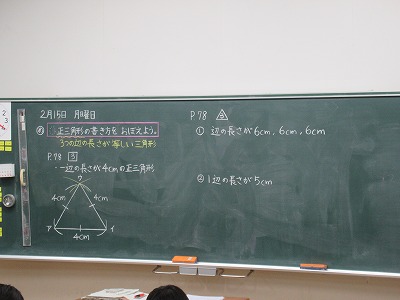 2月15日 月曜日
正三角形の書き方をおぼえよう。
3つの辺の長さが等しい三角形
P.78 3
一辺の長さが4cmの正三角形
ウ
4cm 4cm
ア 4cm イ
P.78
① 辺の長さが6cm, 6cm, 6cm
② 1辺の長さが5cm